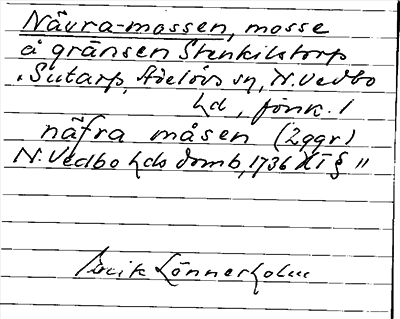 Nävra-mossen, mosse
å gränsen Stenkilstorp
, Sutarp, Adelövs sn, N. Vedbo
hd, Jönk. l
näfra måsen (2 ggr)
N. Vedbo hds domb, 1736 HT § 11
Erik Lönnerholm